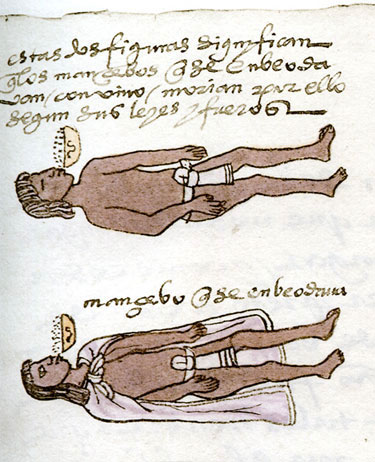 estas dos figuras signyfican
q los mançebos q se enbeoda
van / con vino / morian por ello
segun sus leyes y fueros
mançebo q se enbeodava